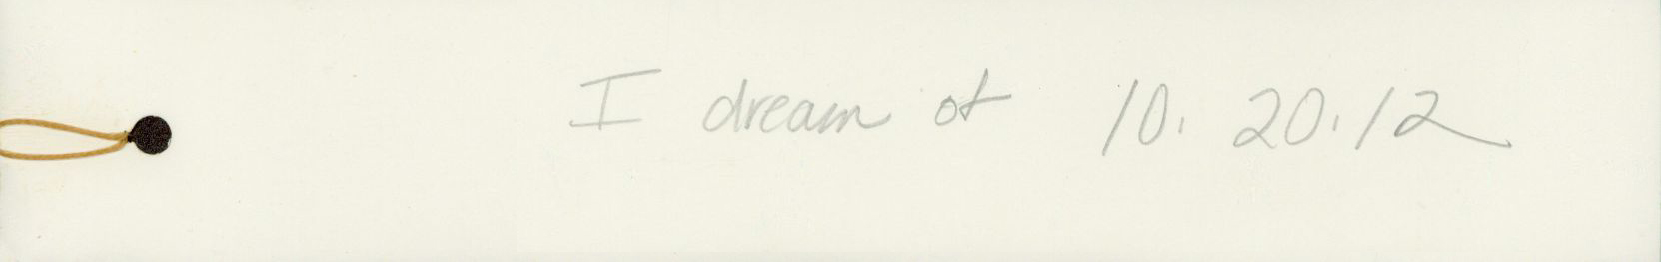 I dream of 10. 20.12